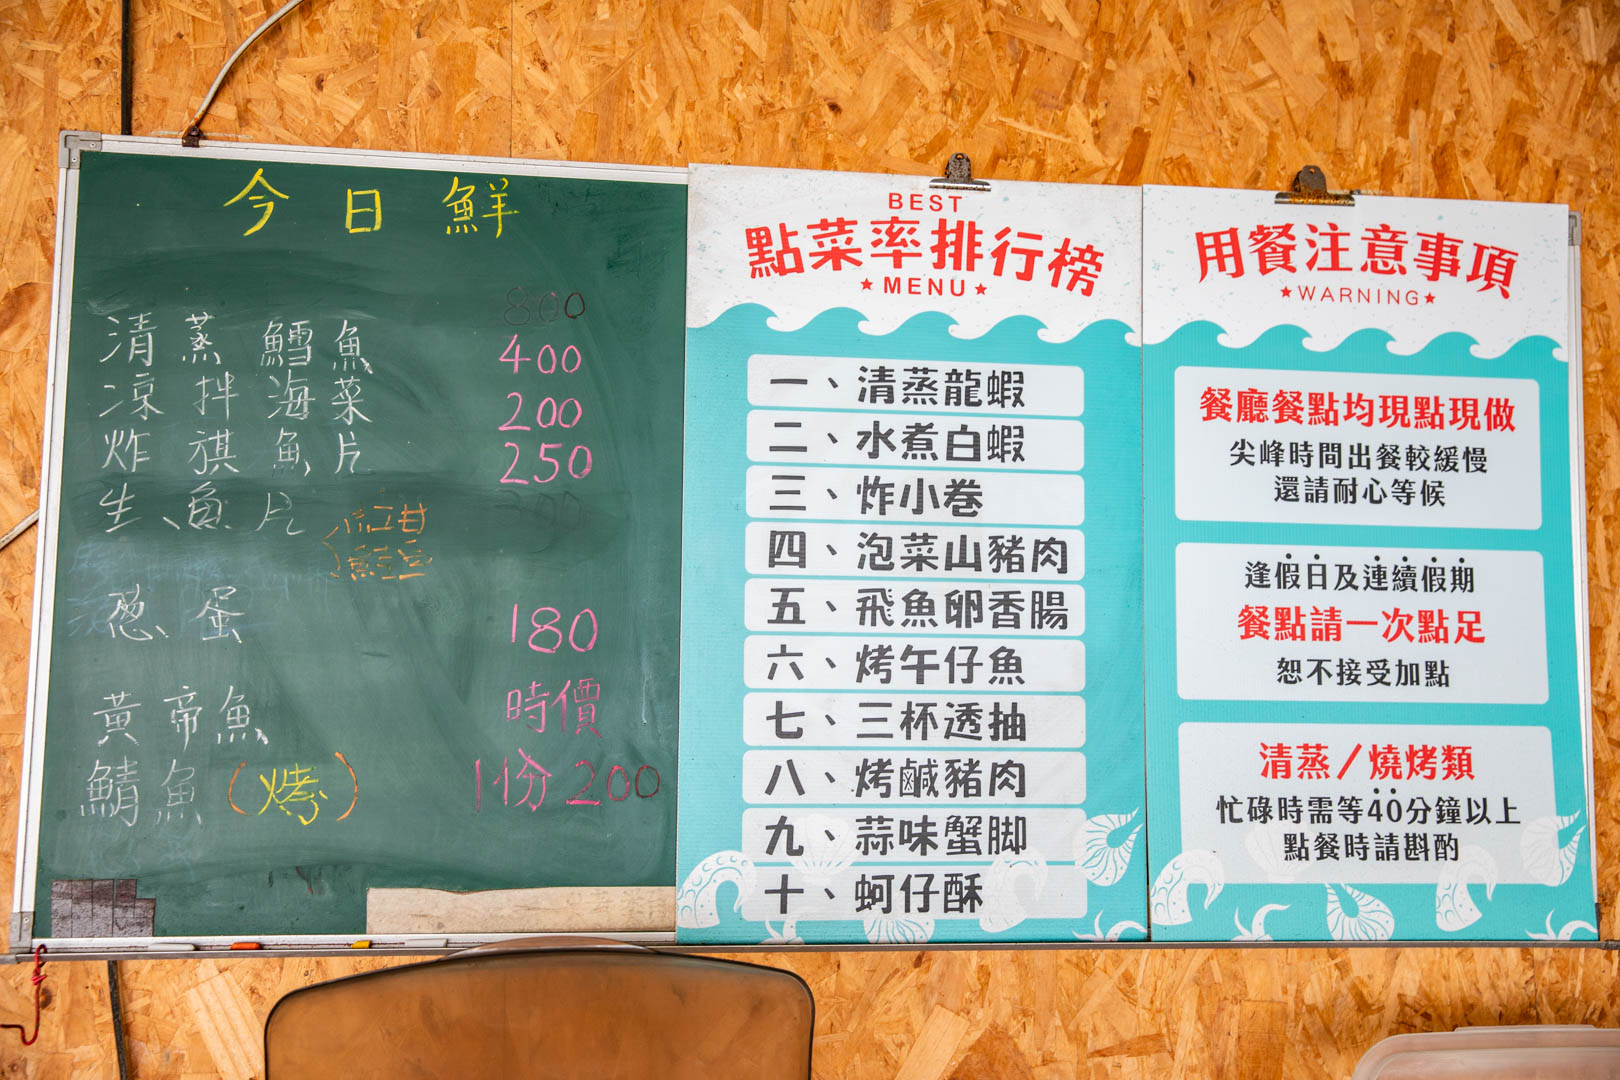 今日鮮
800
清蒸鱈魚 400
涼拌海菜 200
炸旗魚片 250
生魚片 紅甘
鮭魚
蔥蛋 180
黃帝魚 時價
鯖魚(烤) 1份200
BEST
點菜率排行榜
★MENU★
一、清蒸龍蝦
二、水煮白蝦
三、炸小卷
四、泡菜山豬肉
五、飛魚卵香腸
六、烤午仔魚
七、三杯透抽
八、烤鹹豬肉
九、蒜味蟹脚
十、蚵仔酥
用餐注意事項
★WARNING★
餐廳餐點均現點現做
尖峰時間出餐較緩慢
還請耐心等候
逢假日及連續假期
餐點請一次點足
恕不接受加點
清蒸/燒烤類
忙碌時需等40分鐘以上
點餐時請斟酌